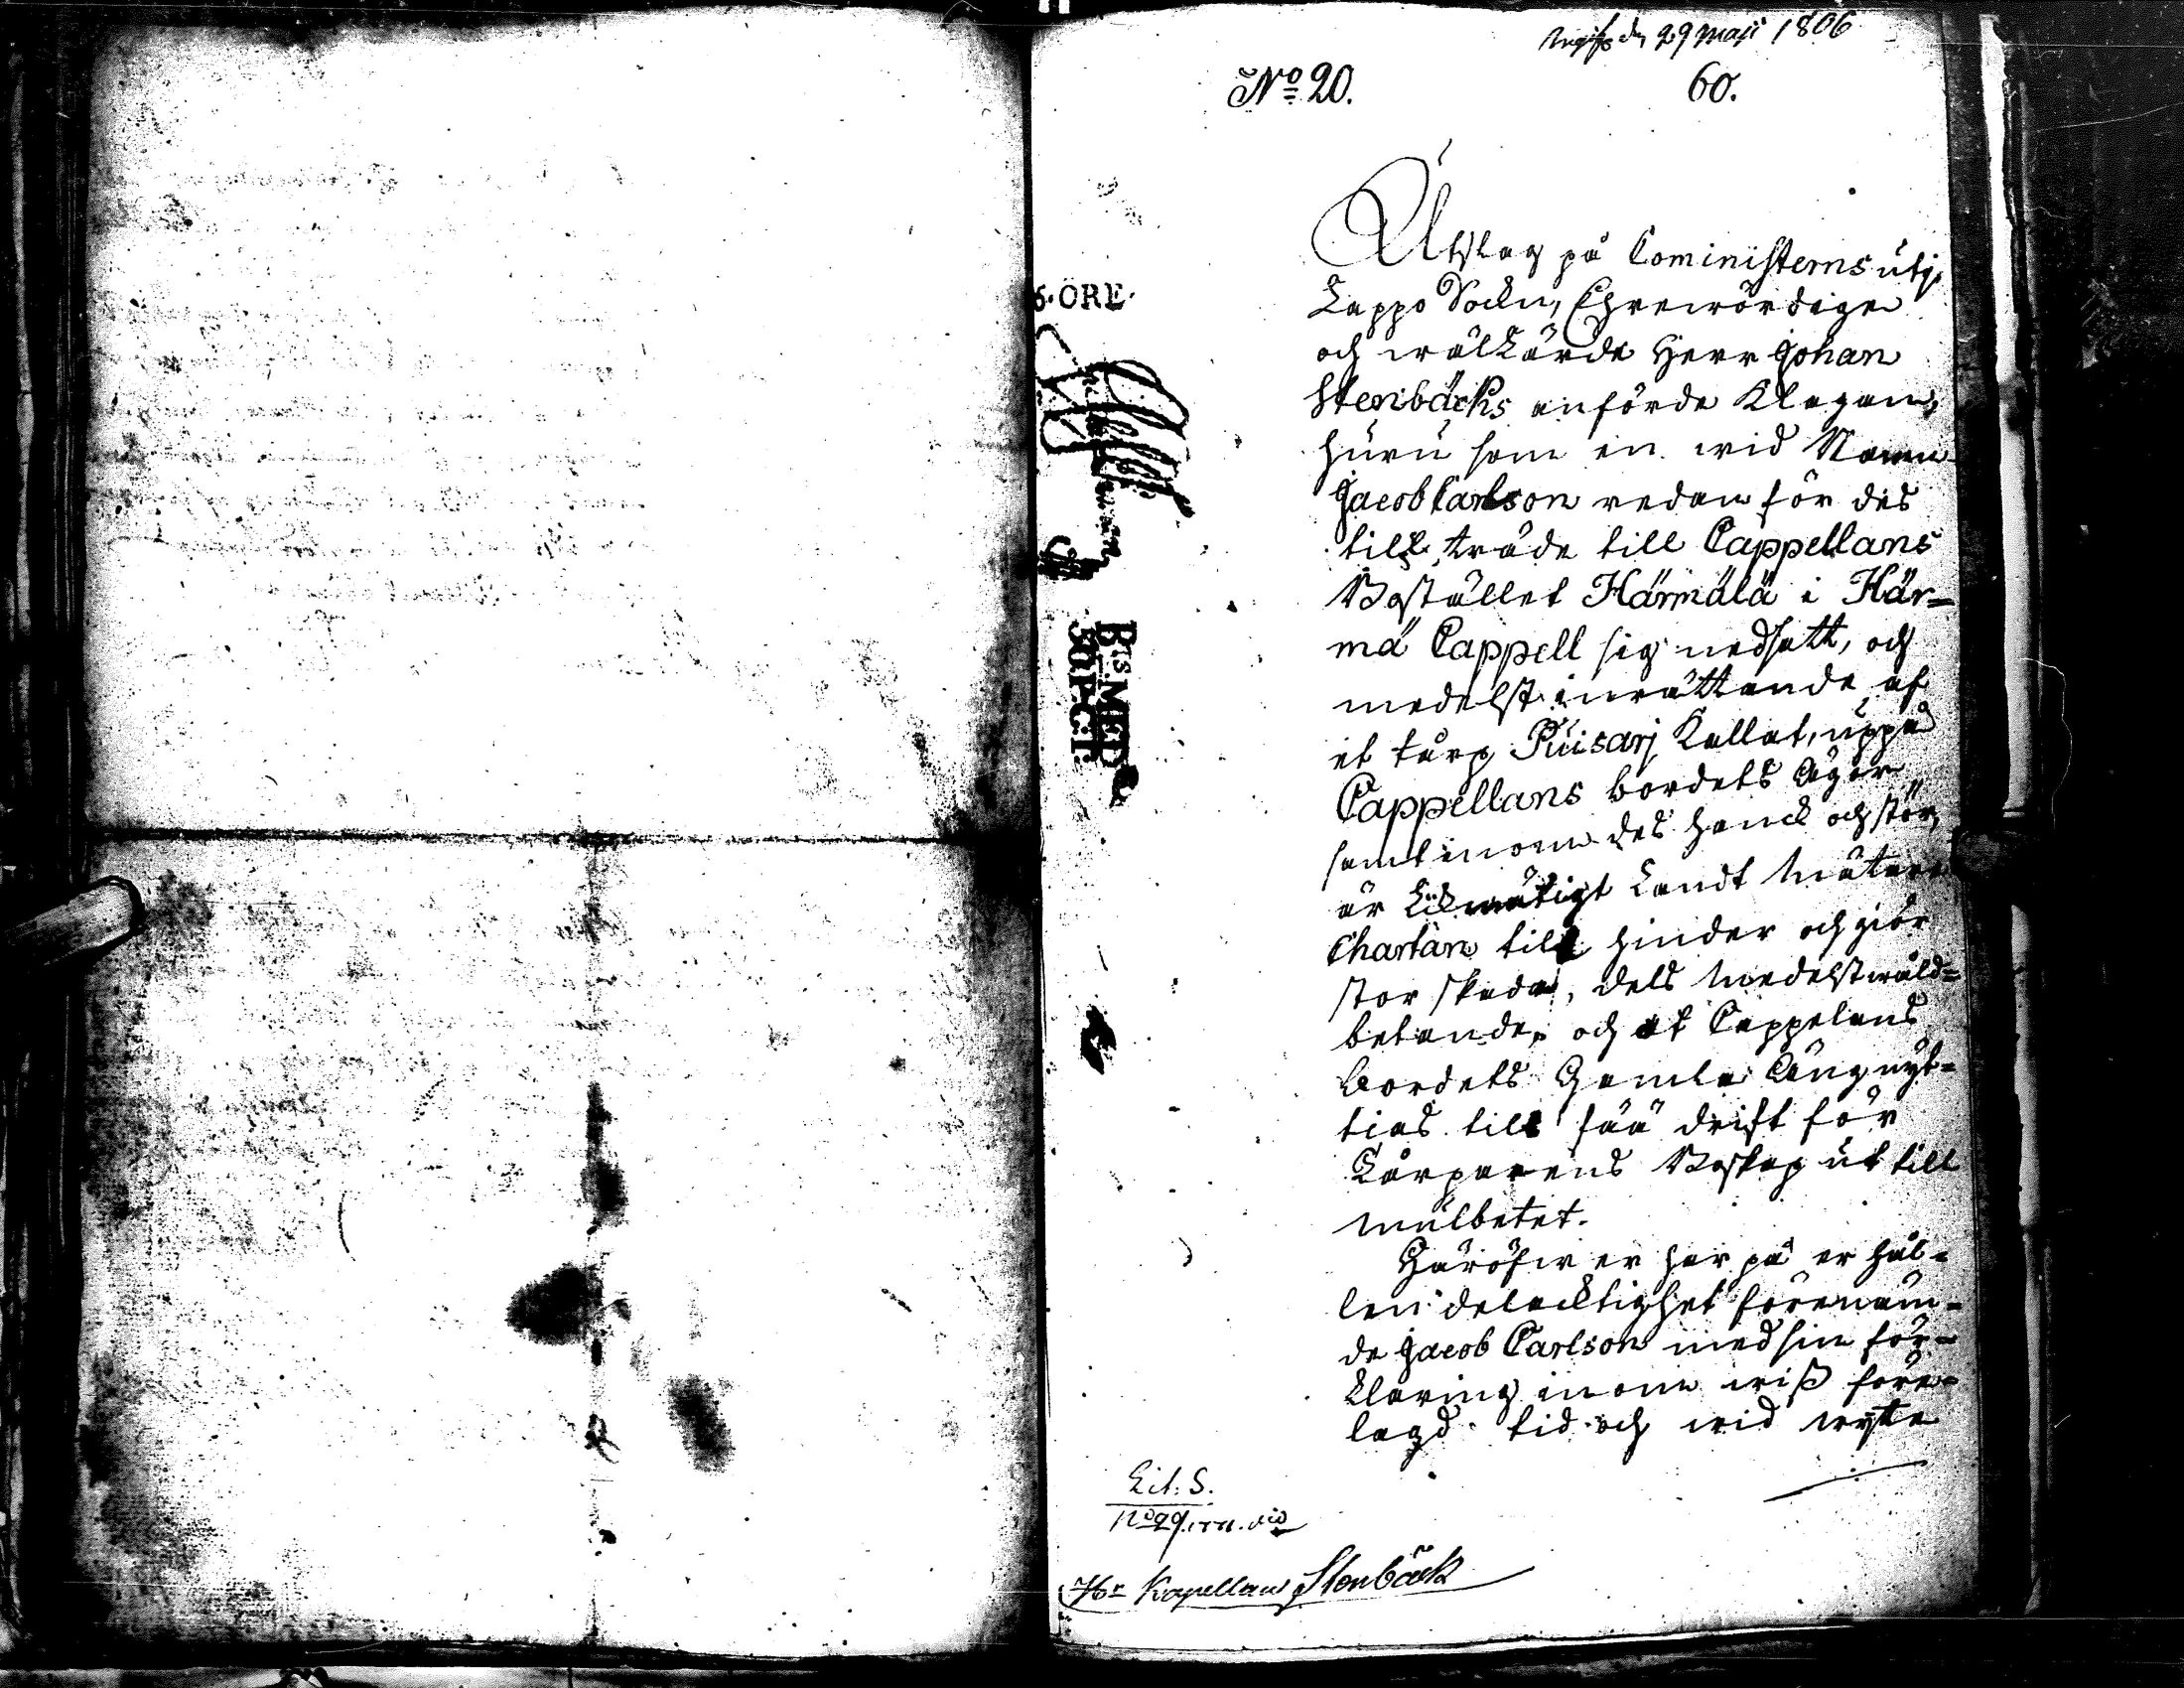 den 29 Maji 1806
No 20. 60.
Utslag på Cominísterns utj
Lappo Sockn, Ehrewördige
och wällärde Herr Johan
Stenbäcks anförde Klagan,
huru som en wid Namn
Jacob Carlson redan för des
till träde till Cappellans
Bostället Härmälä i Här-
mä Cappell sig nedsatt, och
medelst inrättande af
et torp Puisarj Kallat, uppå
Cappellans bordets Ägor
samt inom des hanck och stör,
är Likmätigt Landt Mätare
Chartan till hinder och giör
stor skada, dels medelst wåld-
betande, och at Cappelans
bordets Gamla Äng nyt-
tias till fää drift för
Torparens Boskap ut till
mulbetet.
Häröfwer har på er hål-
len delacktighet förenäm-
de Jacob Carlson med sin för-
klaring inom wiß före-
lagd tid och wid wyte
6. ÖRE.
BTS. MED
50 P: C: T:
Lit: S.
No 29.
Hr Kapellan Stenbäck